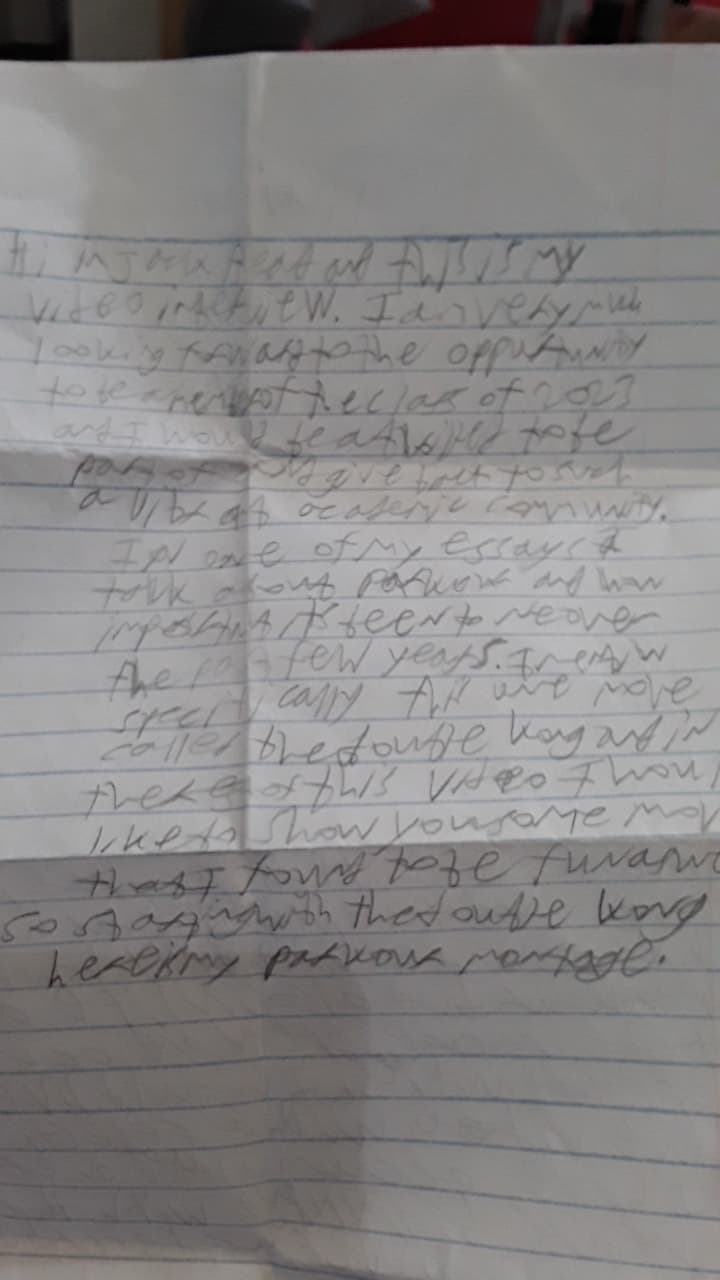 Hi im Jack and this is my
video interview. I am very much
looking forward to the oppurtunity
to be a member of the class of 2023
and I would be to be
part of and give back to such
a vibrant academic community.
In one of my essays I
talk about parkour and how
important its been to me over
the past few years.
specifically this one move
called the double kong and in
the rest of this video I woul
like to show you some mov
that I found to be fun and
so starting with the double kong
here is my parkour montage.